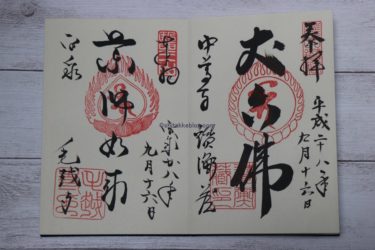 奉拝
平成二十八年九月十六日
丈六佛
中尊寺 讃衡蔵
平成二十八年
九月十六日
薬師如来
平泉 毛越寺